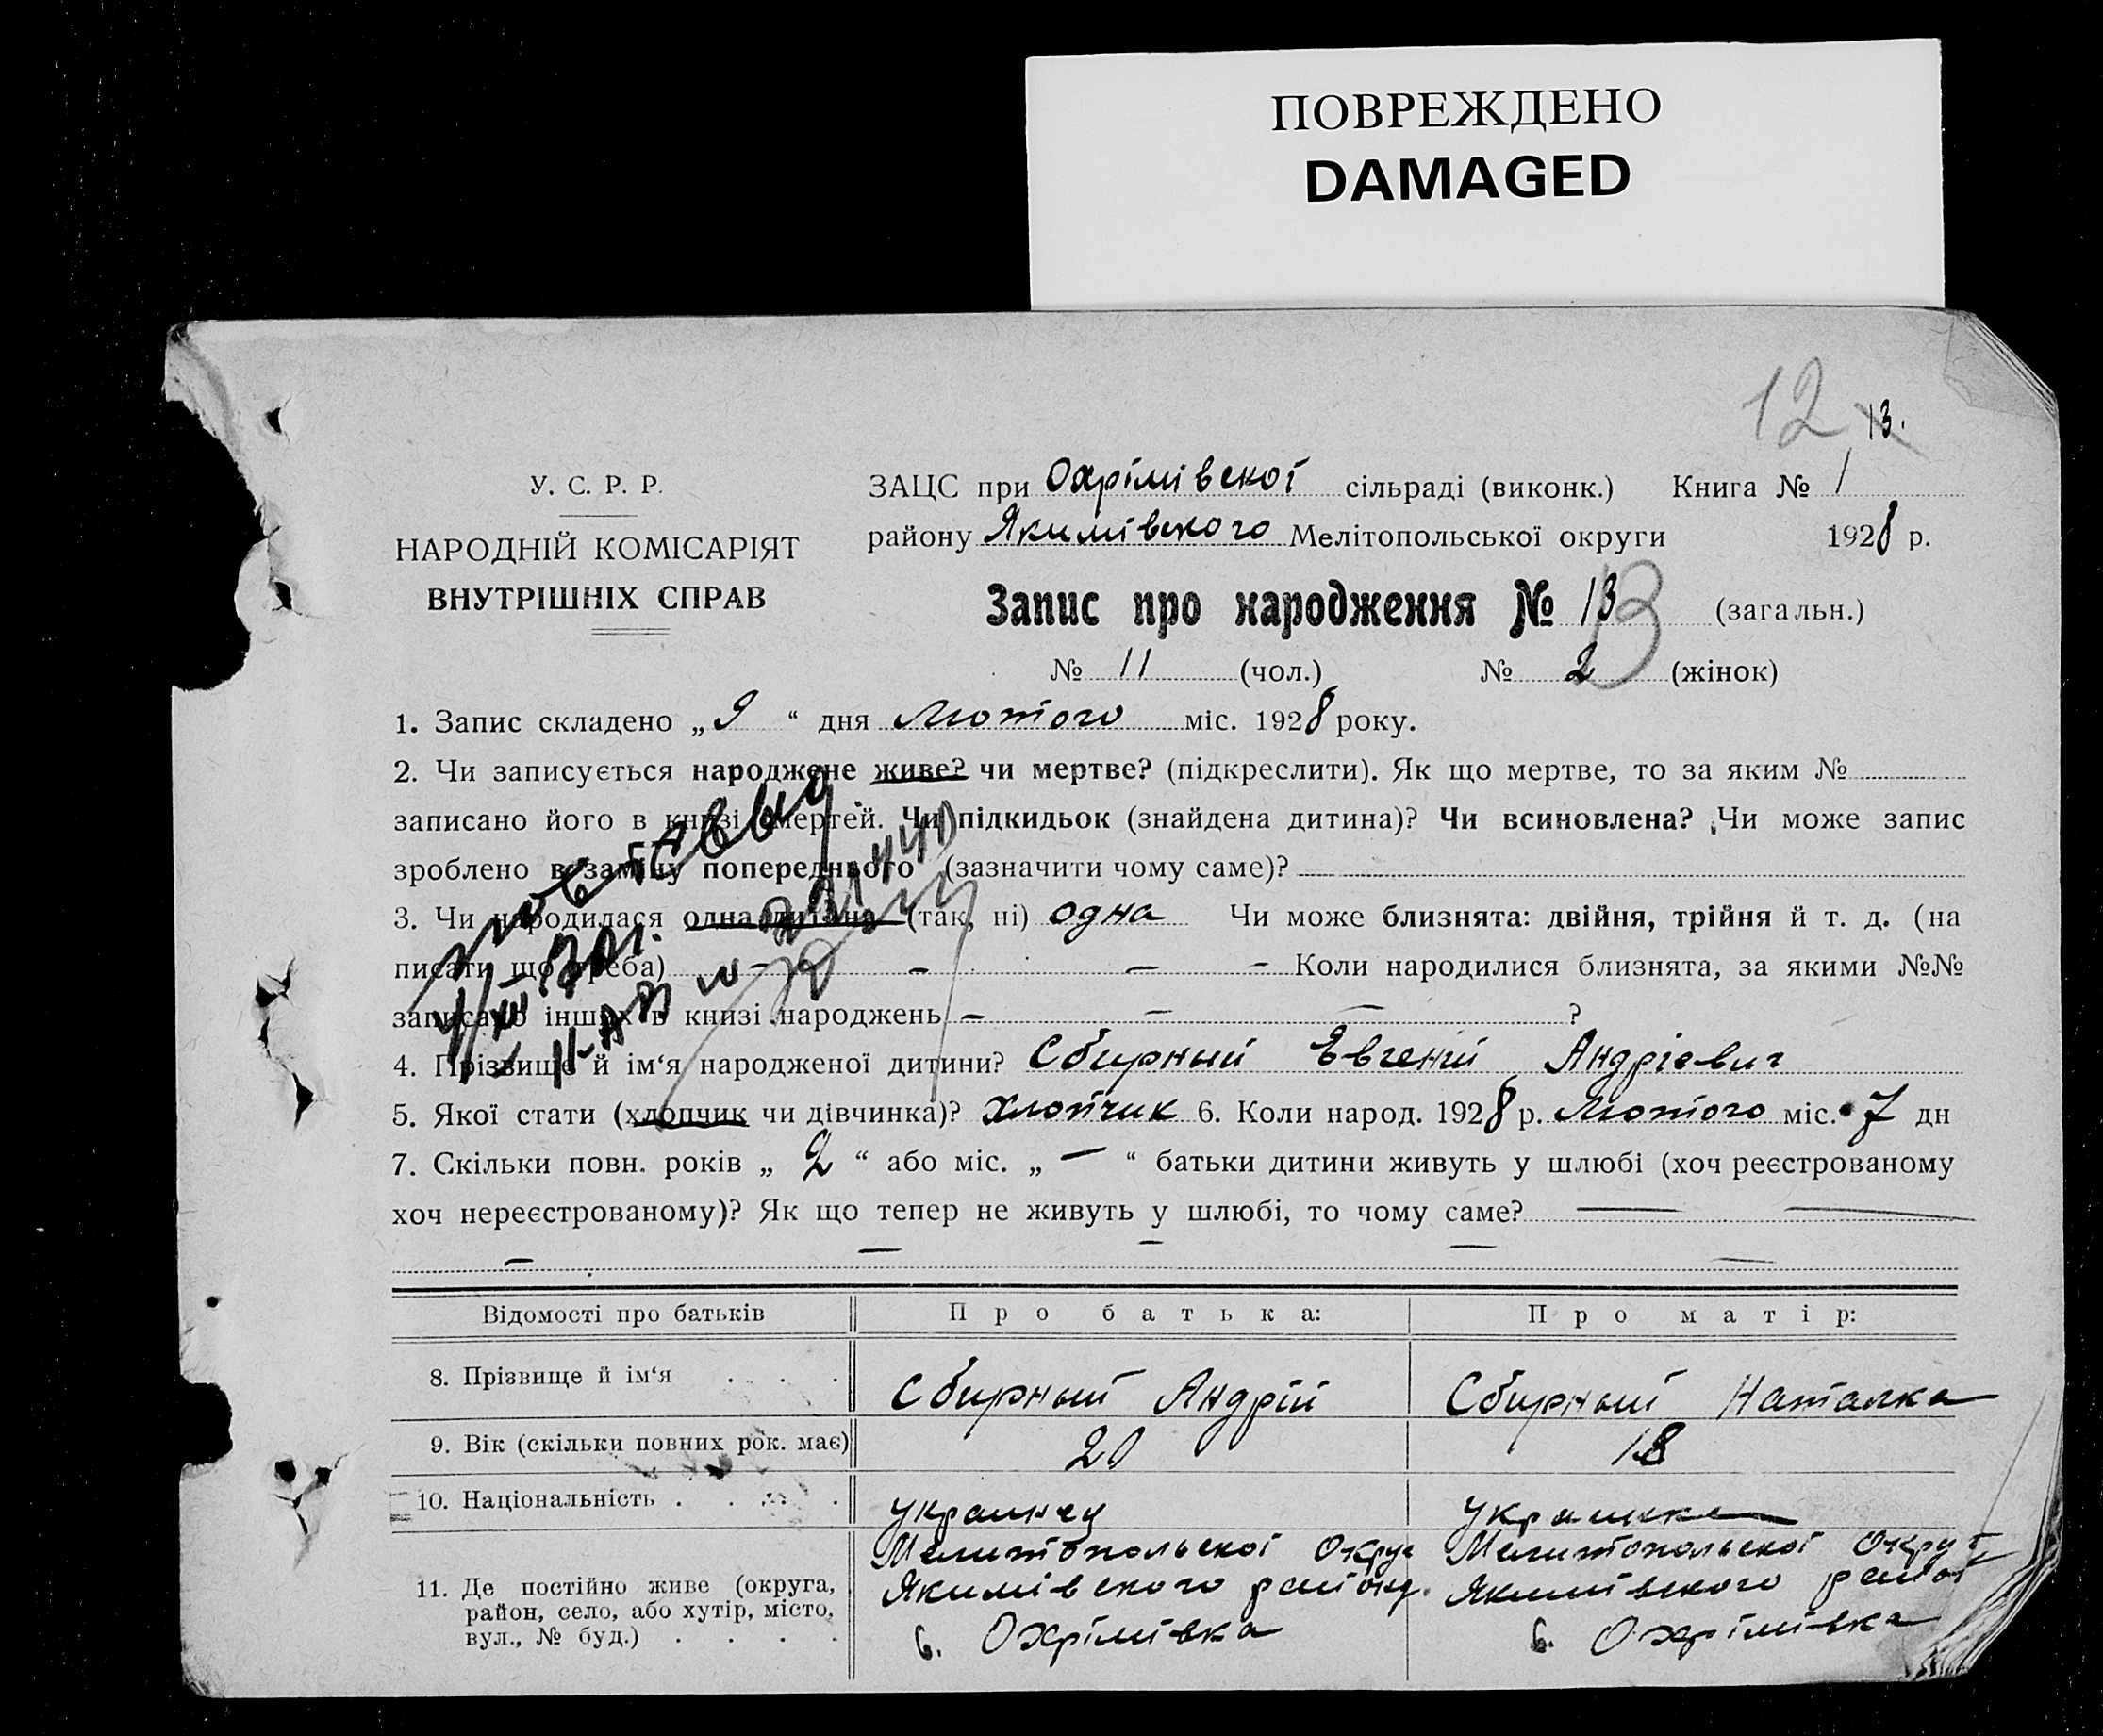 ПОВРЕЖДЕНО
DAMAGED
12 13.
У. С. Р. Р.
НАРОДНІЙ КОМІСАРІЯТ
ВНУТРІШНІХ СПРАВ
ЗАЦС при Охрімівскої сільраді (виконк.) Книга № 1
району Якимівского Мелітопольської округи 1928 р.
Запис про народження № 13 (загальн.)
13
№ 11 (чол.) № 2 (жінок)
1. Запис складено „ 9 “ дня Лютого міс. 1928 року.
2. Чи записується народжене живе? чи мертве? (підкреслити). Як що мертве, то за яким №
записано його в книзі смертей. Чи підкидьок (знайдена дитина)? Чи всиновлена? Чи може запис
зроблено в заміну попереднього (зазначити чому саме)? —
3. Чи народилася одна дитина (так, ні) одна Чи може близнята: двійня, трійня й т. д. (на
писати що треба) — — — — Коли народилися близнята, за якими №№
записано інших в книзі народжень — — — ?
4. Прізвище й ім‘я народженої дитини? Сбирный Евгений Андрієвич
5. Якої стати (хлопчик чи дівчинка)? Хлопчик 6. Коли народ. 1928 р. Лютого міс. 7 дн
7. Скільки повн. років „ 2 “ або міс. „ — “ батьки дитини живуть у шлюбі (хоч реєстрованому
хоч нереєстрованому)? Як що тепер не живуть у шлюбі, то чому саме? — —
— — — — —
Відомості про батьків Про батька: Про матір:
8. Прізвище й ім‘я . . . Сбирный Андрій Сбирный Наталка
9. Вік (скільки повних рок. має) 20 18
10. Національність . . . . украинец украинка
11. Де постійно живе (округа, район, село, або хутір, місто, вул., № буд.) . . . .
Мелитопольскої Округ
Якимівского району.
с. Охрімівка
Мелитопольскої Округ
Якимівского район
с. Охрімівка